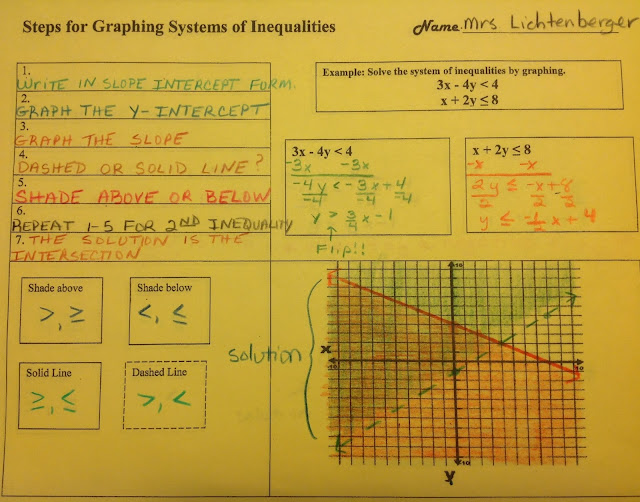 Steps for Graphing Systems of Inequalities
Name Mrs Lichtenberger
1.
WRITE IN SLOPE INTERCEPT FORM.
2.
GRAPH THE Y-INTERCEPT
3.
GRAPH THE SLOPE
4.
DASHED OR SOLID LINE?
5.
SHADE ABOVE OR BELOW
6.
REPEAT 1-5 FOR 2ND INEQUALITY
7. THE SOLUTION IS THE
INTERSECTION
Example: Solve the system of inequalities by graphing.
3x - 4y < 4
x + 2y ≤ 8
3x - 4y < 4
-3x -3x
-4y < -3x + 4
-4 -4 -4
y > 3/4 x - 1
↑
Flip!!
x + 2y ≤ 8
-x -x
2y ≤ -x+8
2 2 2
y ≤ -1/2 x + 4
Shade above
>, ≥
Shade below
<, ≤
Solid Line
≥, ≤
Dashed Line
>, <
solution
10
x
-10 10
-10
y